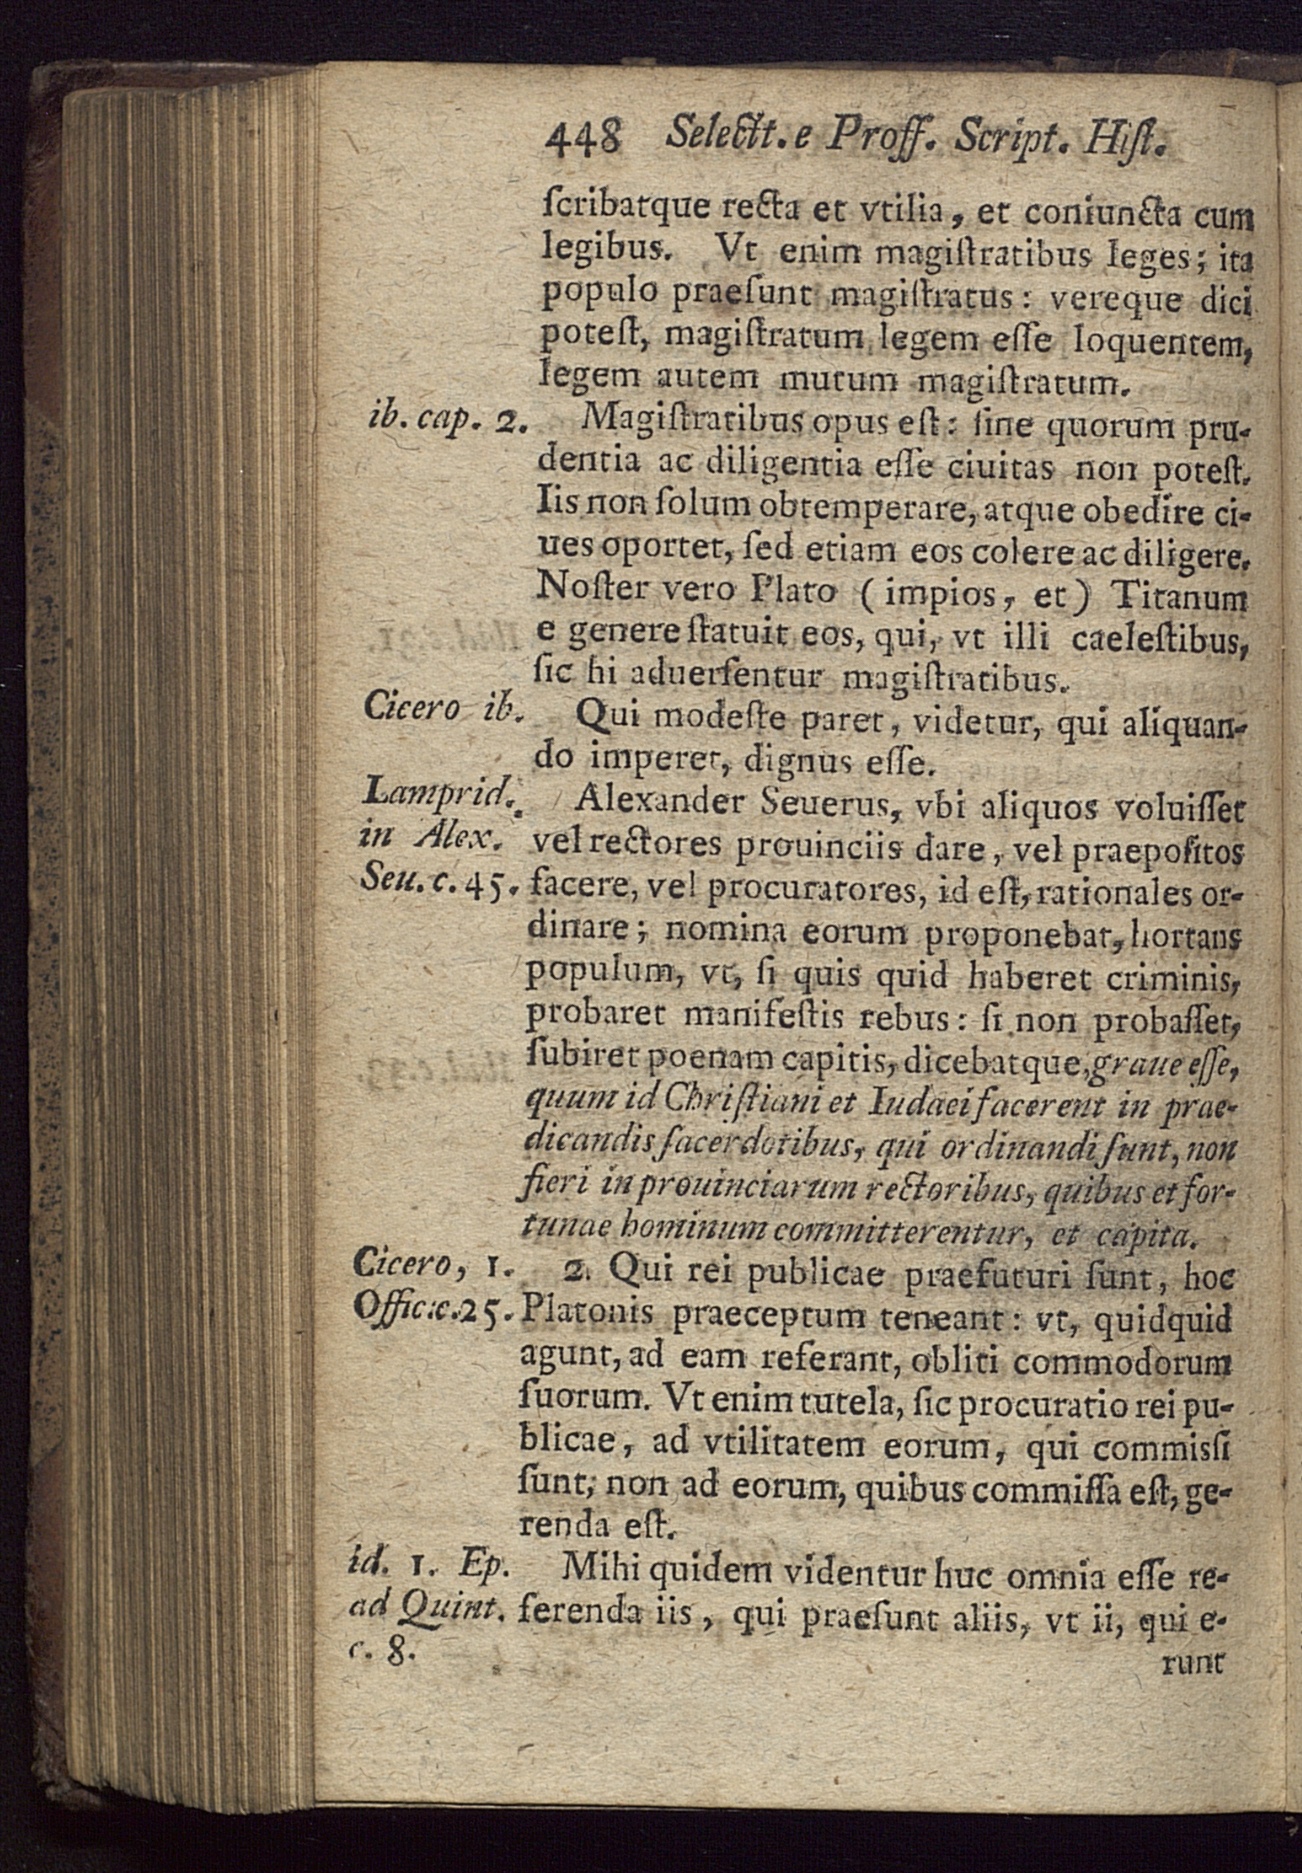 448 Selectt. e Proff. Script. Hiſt.
ſcribatque recta et vtilia, et coniuncta cum
legibus. Vt enim magiſtratibus leges; ita
populo praeſunt magiſtratus: vereque dici
poteſt, magiſtratum legem eſſe loquentem,
legem autem mutum magiſtratum.
ib. cap. 2. Magiſtratibus opus eſt: ſine quorum pru-
dentia ac diligentia eſſe ciuitas non poteſt.
Iis non ſolum obtemperare, atque obedire ci-
ues oportet, ſed etiam eos colere ac diligere.
Noſter vero Plato (impios, et) Titanum
e genere ſtatuit eos, qui, vt illi caeleſtibus,
ſic hi aduerſentur magiſtratibus.
Cicero ib. Qui modeſte paret, videtur, qui aliquan-
do imperet, dignus eſſe.
Lamprid. Alexander Seuerus, vbi aliquos voluiſſet
in Alex. vel rectores prouinciis dare, vel praepoſitos
Seu. c. 45. facere, vel procuratores, id eſt, rationales or-
dinare; nomina eorum proponebat, hortans
populum, vt, ſi quis quid haberet criminis,
probaret manifeſtis rebus: ſi non probaſſet,
ſubiret poenam capitis, dicebatque, graue eſſe,
quum id Chriſtiani et Iudaei facerent in prae-
dicandis ſacerdotibus, qui ordinandi ſunt, non
fieri in prouinciarum rectoribus, quibus et for-
tunae hominum committerentur, et capita.
Cicero, 1. 2. Qui rei publicae praefuturi ſunt, hoc
Offic. c. 25. Platonis praeceptum teneant: vt, quidquid
agunt, ad eam referant, obliti commodorum
ſuorum. Vt enim tutela, ſic procuratio rei pu-
blicae, ad vtilitatem eorum, qui commiſſi
ſunt, non ad eorum, quibus commiſſa eſt, ge-
renda eſt.
id. 1. Ep. Mihi quidem videntur huc omnia eſſe re-
ad Quint. ferenda iis, qui praeſunt aliis, vt ii, qui e-
c. 8. runt